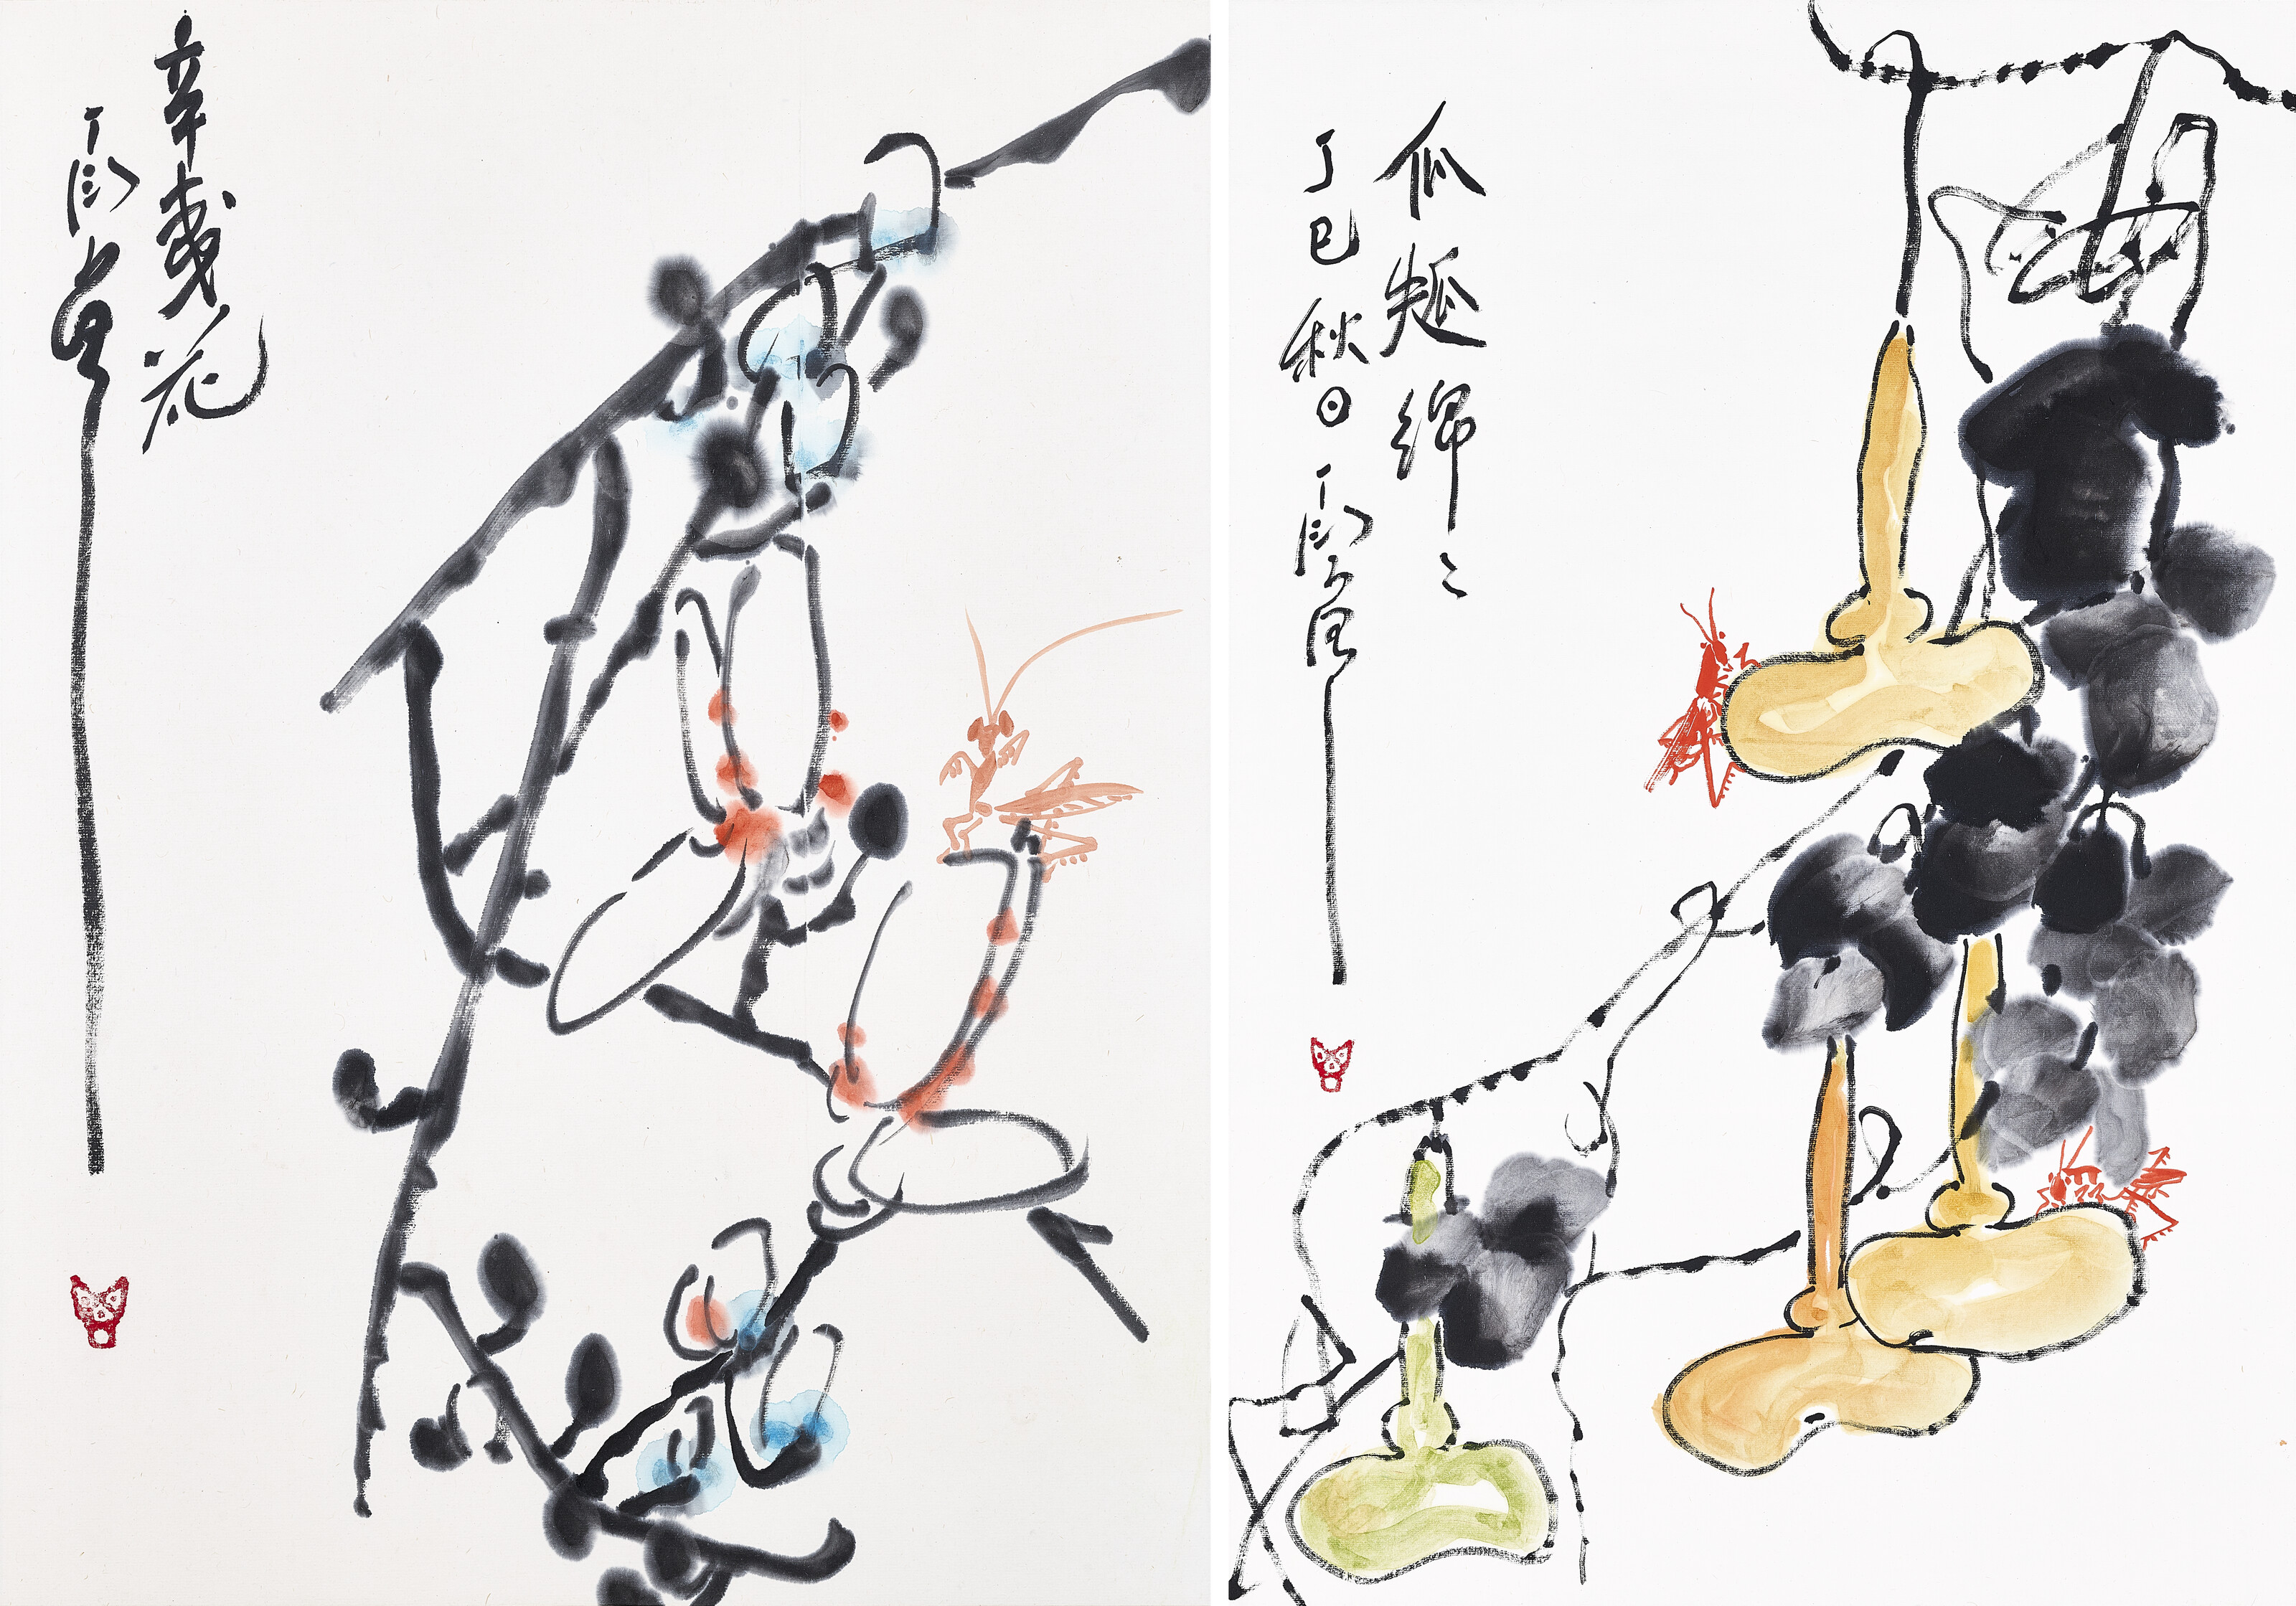 辛夷花
丁衍庸
瓜瓞綿〻
丁巳秋日丁衍庸